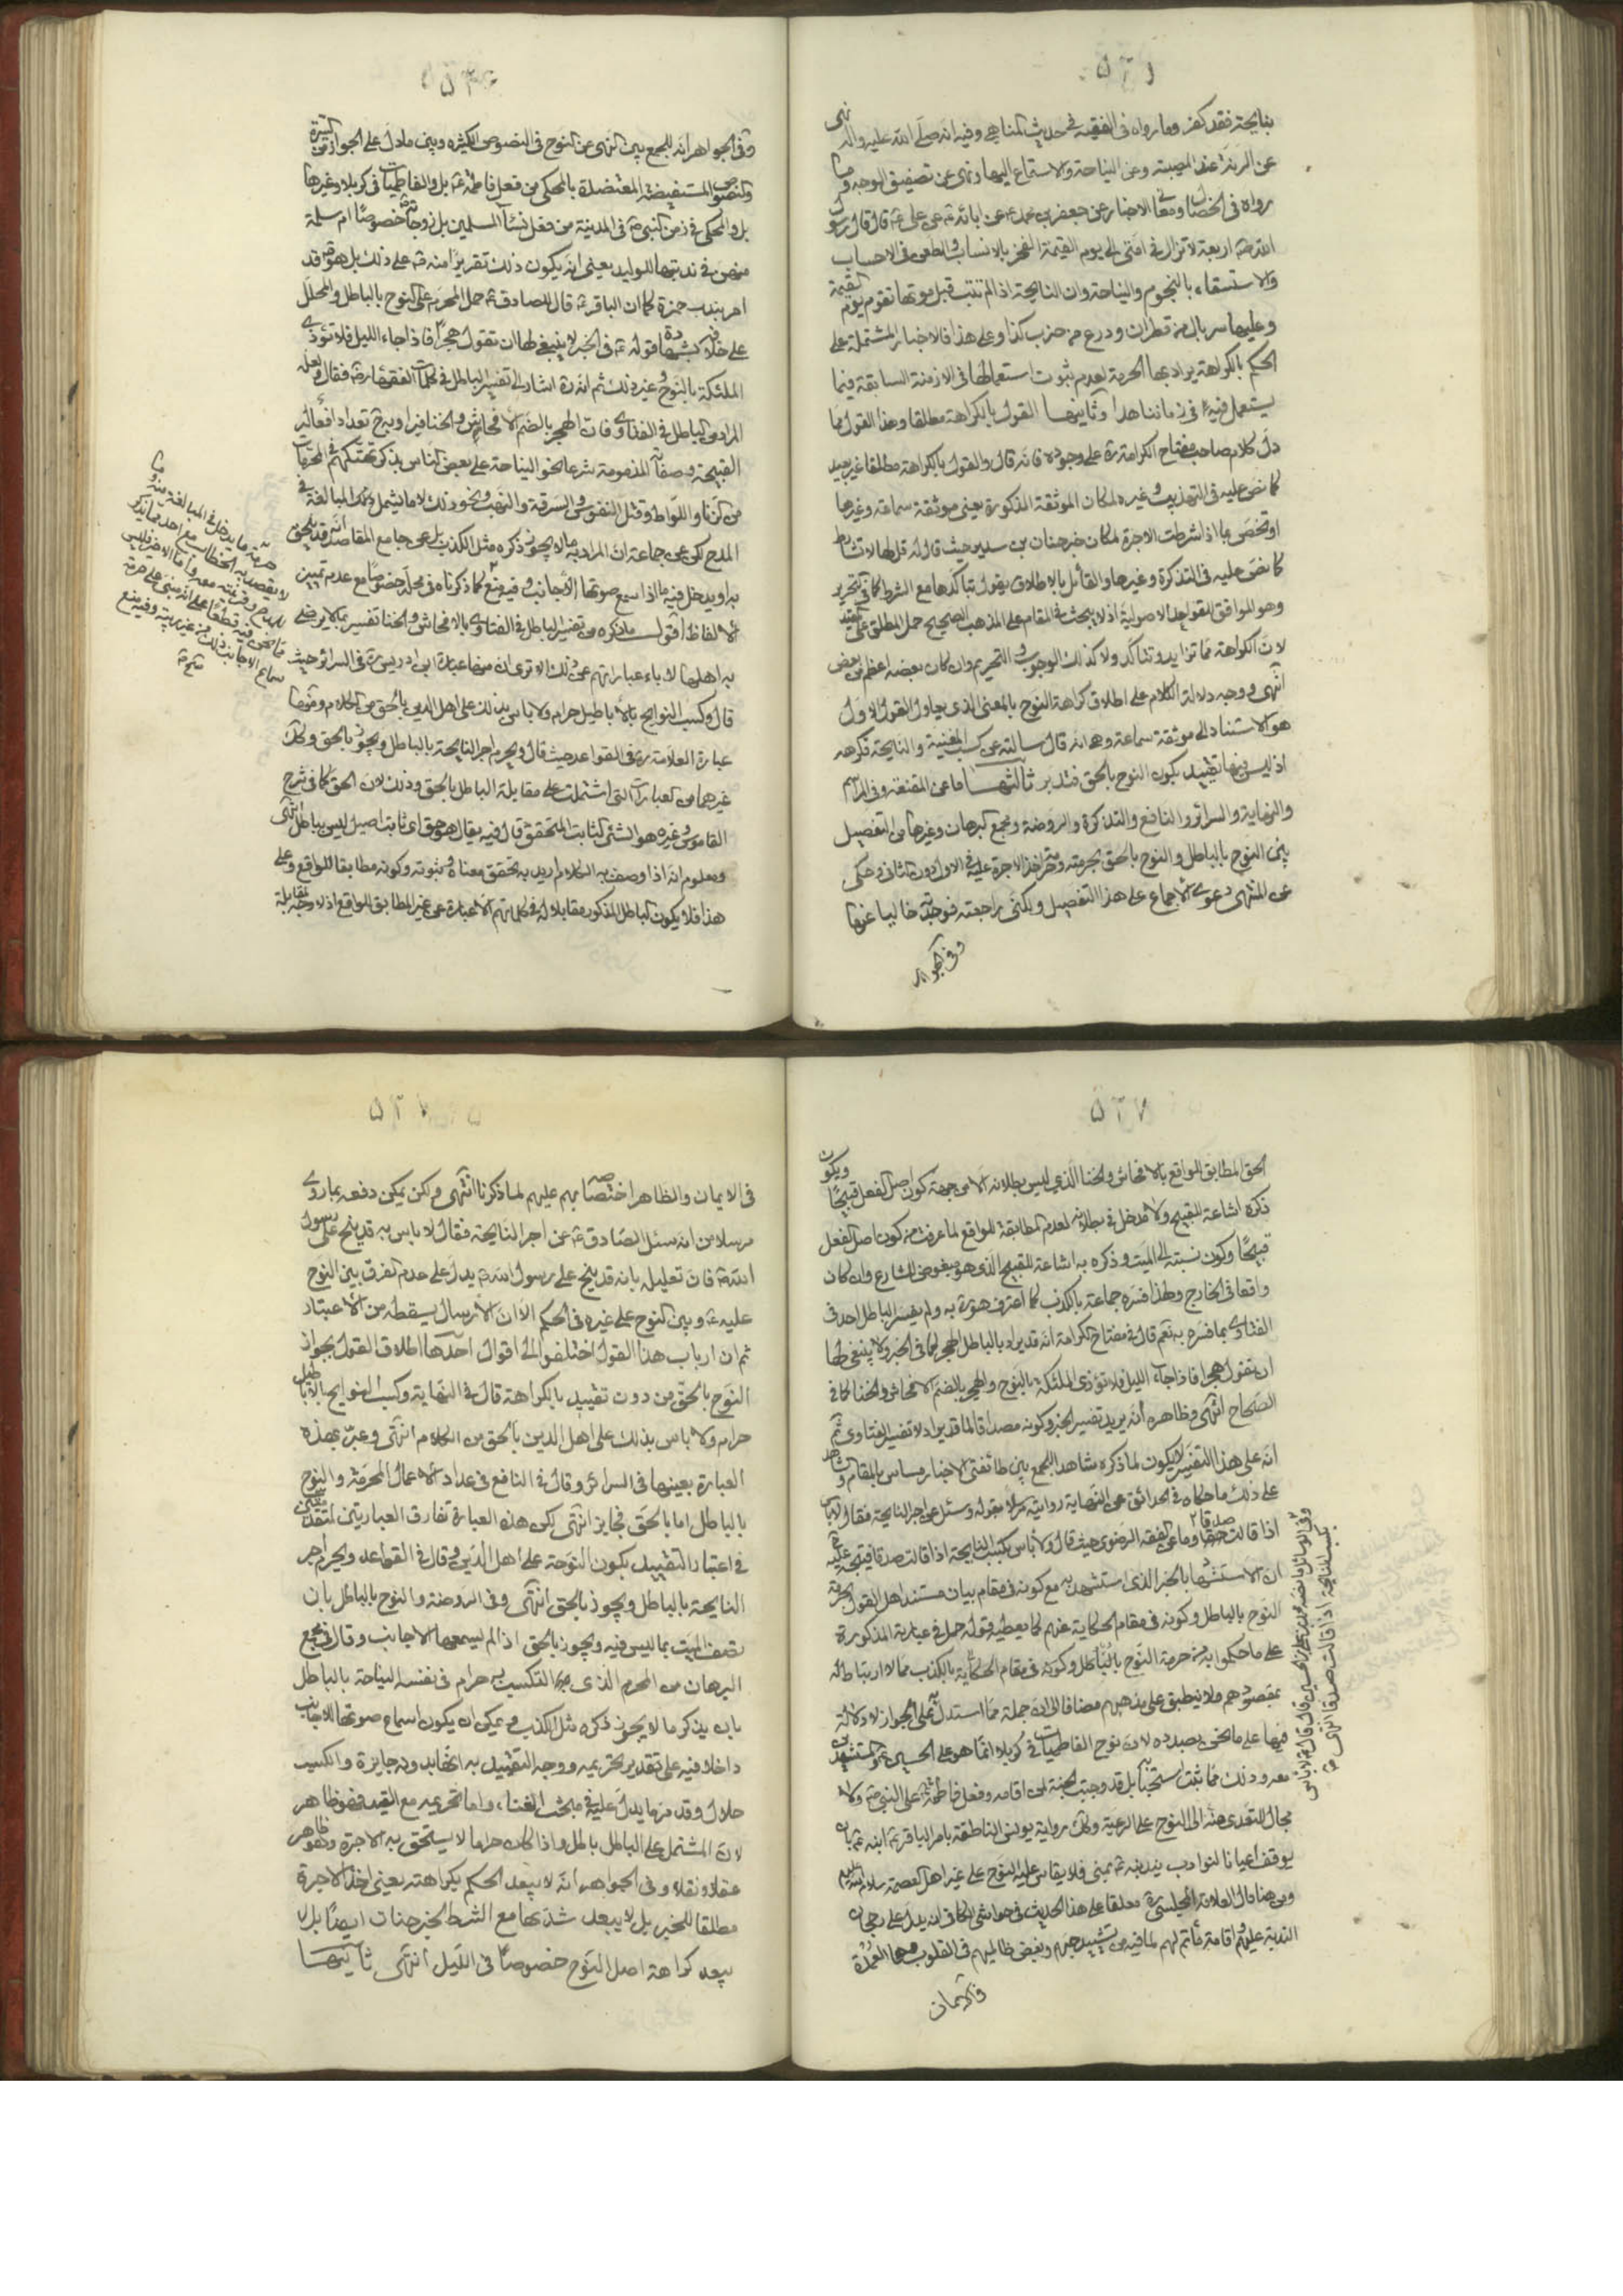 ٥٢٦
بنايحة فقد كفر وما رواه فى الفقيه فى حديث المناهى وفيه انه صلى الله عليه واله نهى
عن الرنة عند المصيبة وعن النياحة والاستماع اليها ونهى عن تصفيق الوجه وما
رواه فى الخصال ومعانى الاخبار عن جعفر بن محمد عن ابائه عن على قال قال رسول
الله اربعة لا تزال فى امتى الى يوم القيمة الفخر بالانساب والطعن فى الاحساب
والاستسقاء بالنجوم والنياحة وان النايحة اذا لم تتب قبل موتها تقوم يوم القيمة
وعليها سربال من قطران ودرع من جرب كذا وعلى هذا فالاخبار المشتملة على
الحكم بالكراهة يراد بها الحرمة لعدم ثبوت استعمالها فى الازمنة السابقة فيما
يستعمل فيه فى زماننا هذا وثانيها القول بالكراهة مطلقا وهذا القول مما
دل كلام صاحب مفتاح الكرامة ره على وجوده فانه قال والقول بالكراهة مطلقا غير بعيد
كما نص عليه فى التهذيب وغيره لمكان الموثقة المذكورة يعنى موثقة سماعة وغيرها
او تخص بما اذا اشرطت الاجرة لمكان خبر حنان بن سدير حيث قال له قل لها لا تشارط
كما نص عليه فى التذكرة وغيرها والقائل بالاطلاق يقول بتاكدها مع الشرط كما فى التحرير
وهو الموافق للقواعد الاصولية اذ لا يبحث فى المقام على المذهب الصحيح حمل المطلق على المقيد
لان الكراهة مما تزايد وتتاكد ولا كذلك الوجوب والتحريم وان كان بعضه اعظم من بعض
انتهى ووجه دلالة الكلام على اطلاق كراهة النوح بالمعنى الذى يحاول القول الاول
هو الاستناد الى موثقة سماعة وهى انه قال سالته عن كسب المغنية والنايحة فكرهه
اذ ليس فيها تقييد بكون النوح بالحق فتدبر ثالثها ما عن المقنعة وفى المراسم
والنهاية والسرائر والنافع والتذكرة والروضة ومجمع البرهان وغيرها من التفصيل
بين النوح بالباطل والنوح بالحق بحرمته وتحريم اخذ الاجرة عليه فى الاول دون الثانى وحكى
عن المنتهى دعوى الاجماع على هذا التفصيل ولكنى راجعته فوجدته خاليا عنها
وفى الجواهر
وفى الجواهر انه للجمع بين النهى عن النوح فى النصوص الكثيره وبين ما دل على الجواز من السيرة
والنصوص المستفيضة المعتضدة بالمحكى من فعل فاطمة بل والفاطميات فى كربلا وغيرها
بل والمحكى فى زمن النبى فى المدينة من فعل نساء المسلمين بل زوجاته خصوصا ام سلمة
منهن فى ندبتها للوليد يعنى انه يكون ذلك تقريرا منه على ذلك بل هو قد
امر بندب حمزة كما ان الباقر قال للصادق حمل المحرم على النوح بالباطل والمحلل
على خلافه كشهادة قوله فى الخبر لا ينبغى لها ان تقول هجرا فاذا جاء الليل فلا تؤذى
الملئكة بالنوح وغير ذلك ثم انه ره اشار الى تفسير الباطل فى كلمات الفقهاء فقال ولعله
المراد من الباطل فى الفتاوى فان الهجر بالضم الافحاش والخنا فيراد به تعداد افعاله
القبيحة وصفاته المذمومة شرعا نحو النياحة على بعض الناس بذكر تهتكهم فى المحرمات
من الزنا واللواط وقتل النفوس والسرقة والنهب ونحو ذلك لا ما يشمل المبالغة فى
المدح لكن عن جماعة ان المراد به ما لا يجوز ذكره مثل الكذب بل عن جامع المقاصد انه قد يلحق
به او يدخل فيه ما اذا سمع صوتها الاجانب وفيه منع كما ذكرناه فى محله خصوصا مع عدم تميز
الالفاظ اقول ما ذكره من تفسير الباطل فى الفتاوى بالافحاش والخنا تفسير بما لا يرضى
به اهلها لاباء عباراتهم عن ذلك الا ترى ان منها عبارة ابن ادريس ره فى السرائر حيث
قال وكسب النوايح بالاباطيل حرام ولا باس بذلك على اهل الدين بالحق من الكلام ومنها
عبارة العلامة ره فى القواعد حيث قال ويحرم اجر النايحة بالباطل ويجوز بالحق وكذا
غيرهما من العبارات التى اشتملت على مقابلة الباطل بالحق وذلك لان الحق كما فى شرح
القاموس وغيره هو الشئ الثابت المتحقق قال فيه يقال هو حق اى ثابت اصيل ليس بباطل انتهى
ومعلوم انه اذا وصف به الكلام اريد به تحقق معناه وثبوته وكونه مطابقا للواقع وعلى
هذا فلا يكون الباطل المذكور مقابلا له فى كلماتهم الا عبارة عن غير المطابق للواقع اذ لا وجه لمقابلة
٥٢٧
الحق المطابق للواقع بالافحاش والخنا الذى ليس بطلانه الا من جهة كون اصل الفعل قبيحا ويكون
ذكره اشاعة للقبيح ولا مدخل فى بطلانه لعدم المطابقة للواقع لما عرفت من كون اصل الفعل
قبيحا وكون نسبته الى الميت وذكره به اشاعة للقبيح الذى هو مبغوض للشارع وان كان
واقعا فى الخارج ولهذا فسره جماعة بالكذب كما اعترف هو ره به ولم يفسر الباطل احد فى
الفتاوى بما فسره به نعم قال فى مفتاح الكرامة انه قد يراد بالباطل الهجر كما فى الخبر ولا ينبغى لها
ان تقول هجرا فاذا جاء الليل فلا تؤذى الملئكة بالنوح والهجر بالضم الافحاش والخنا كما فى
الصحاح انتهى وظاهره انه يريد تفسير الخبر وكونه مصداقا لما قد يراد لا تفسير الفتاوى ثم
انه على هذا التفسير لا يكون لما ذكره شاهدا للجمع بين طائفتى الاخبار مساس بالمقام وشاهد
على ذلك ما حكاه فى الحدائق عن النهاية رواية مرسلا بقوله وسئل عن اجر النايحة فقال لا باس
اذا قالت صدقا وما عن الفقه الرضوى حيث قال ولا باس بكسب النايحة اذا قالت صدقا فيتجه عليه
ان الاستشهاد بالخبر الذى استشهد به مع كونه فى مقام بيان مستند اهل القول بحرمة
النوح بالباطل وكونه فى مقام الحكاية عنهم كما يعطيه قوله حمل فى عبارته المذكورة
على ما حكموا به من حرمة النوح بالباطل وكونه فى مقام الحكاية بالكذب مما لا ارتباط له
بمقصودهم ولا ينطبق على مذهبهم مضافا الى ان جملة مما استدل به على الجواز لا دلالة
فيها على ما نحن بصدده لان نوح الفاطميات فى كربلا انما هو على الحسين والمستشهدين
معه وذلك مما ثبت استحبابه بل قد وجبت الجنة لمن اقامه وفعل فاطمة على النبى ولا
مجال للتعدى منه الى النوح على الرعية وكذا رواية يونس الناطقة بامر الباقر ابنه بان
يوقف اعيانا لنوادب يندبنه بمنى فلا يقاس عليه النوح على غير اهل العصمة سلام الله عليهم
ومن هنا قال العلامة المجلسى ره معلقا على هذا الحديث فى حواشى الكافى انه يدل على رجحان
الندبة عليهم واقامة مأتم لهم لما فيه من تشييد حبهم وبغض ظالميهم فى القلوب وهما العمدة
فى الايمان
فى الايمان والظاهر اختصاصه بهم عليهم لما ذكرنا انتهى ولكن يمكن دفعه بما روى
مرسلا من انه سئل الصادق عن اجر النايحة فقال لا باس به قد نيح على رسول
الله فان تعليله بانه قد نيح على رسول الله يدل على عدم الفرق بين النوح
عليه وبين النوح على غيره فى الحكم الا ان الارسال يسقطه من الاعتبار
ثم ان ارباب هذا القول اختلفوا الى اقوال احدها اطلاق القول بجواز
النوح بالحق من دون تقييد بالكراهة قال فى النهاية وكسب النوايح بالاباطيل
حرام ولا باس بذلك على اهل الدين بالحق من الكلام انتهى وعبر بهذه
العبارة بعينها فى السرائر وقال فى النافع فى عداد الاعمال المحرمة والنوح
بالباطل اما بالحق فجايز انتهى لكن هذه العبارة تفارق العبارتين المتقدمتين
فى اعتبار التقييد بكون النوحة على اهل الدين وقال فى القواعد ويحرم اجر
النايحة بالباطل ويجوز بالحق انتهى وفى الروضة والنوح بالباطل بان
تصف الميت بما ليس فيه ويجوز بالحق اذا لم يسمعها الاجانب وقال فى مجمع
البرهان من المحرم الذى التكسب به حرام فى نفسه النياحة بالباطل
بان يذكر ما لا يجوز ذكره مثل الكذب ويمكن ان يكون اسماع صوتها للاجانب
داخلا فيه على تقدير تحريمه ووجه التقييد به انها بدونه جايزة والكسب
حلال وقد مر ما يدل عليه فى مبحث الغناء واما تحريمه مع القيد فهو ظاهر
لان المشتمل على الباطل باطل واذا كان حراما لا يستحق به الاجرة وهو ظاهر
عقلا ونقلا وفى الجواهر انه لا يبعد الحكم بكراهته يعنى اخذ الاجرة
مطلقا للخبر بل لا يبعد شدتها مع الشرط لخبر حنان ايضا بل لا
يبعد كراهة اصل النوح خصوصا فى الليل انتهى ثانيها